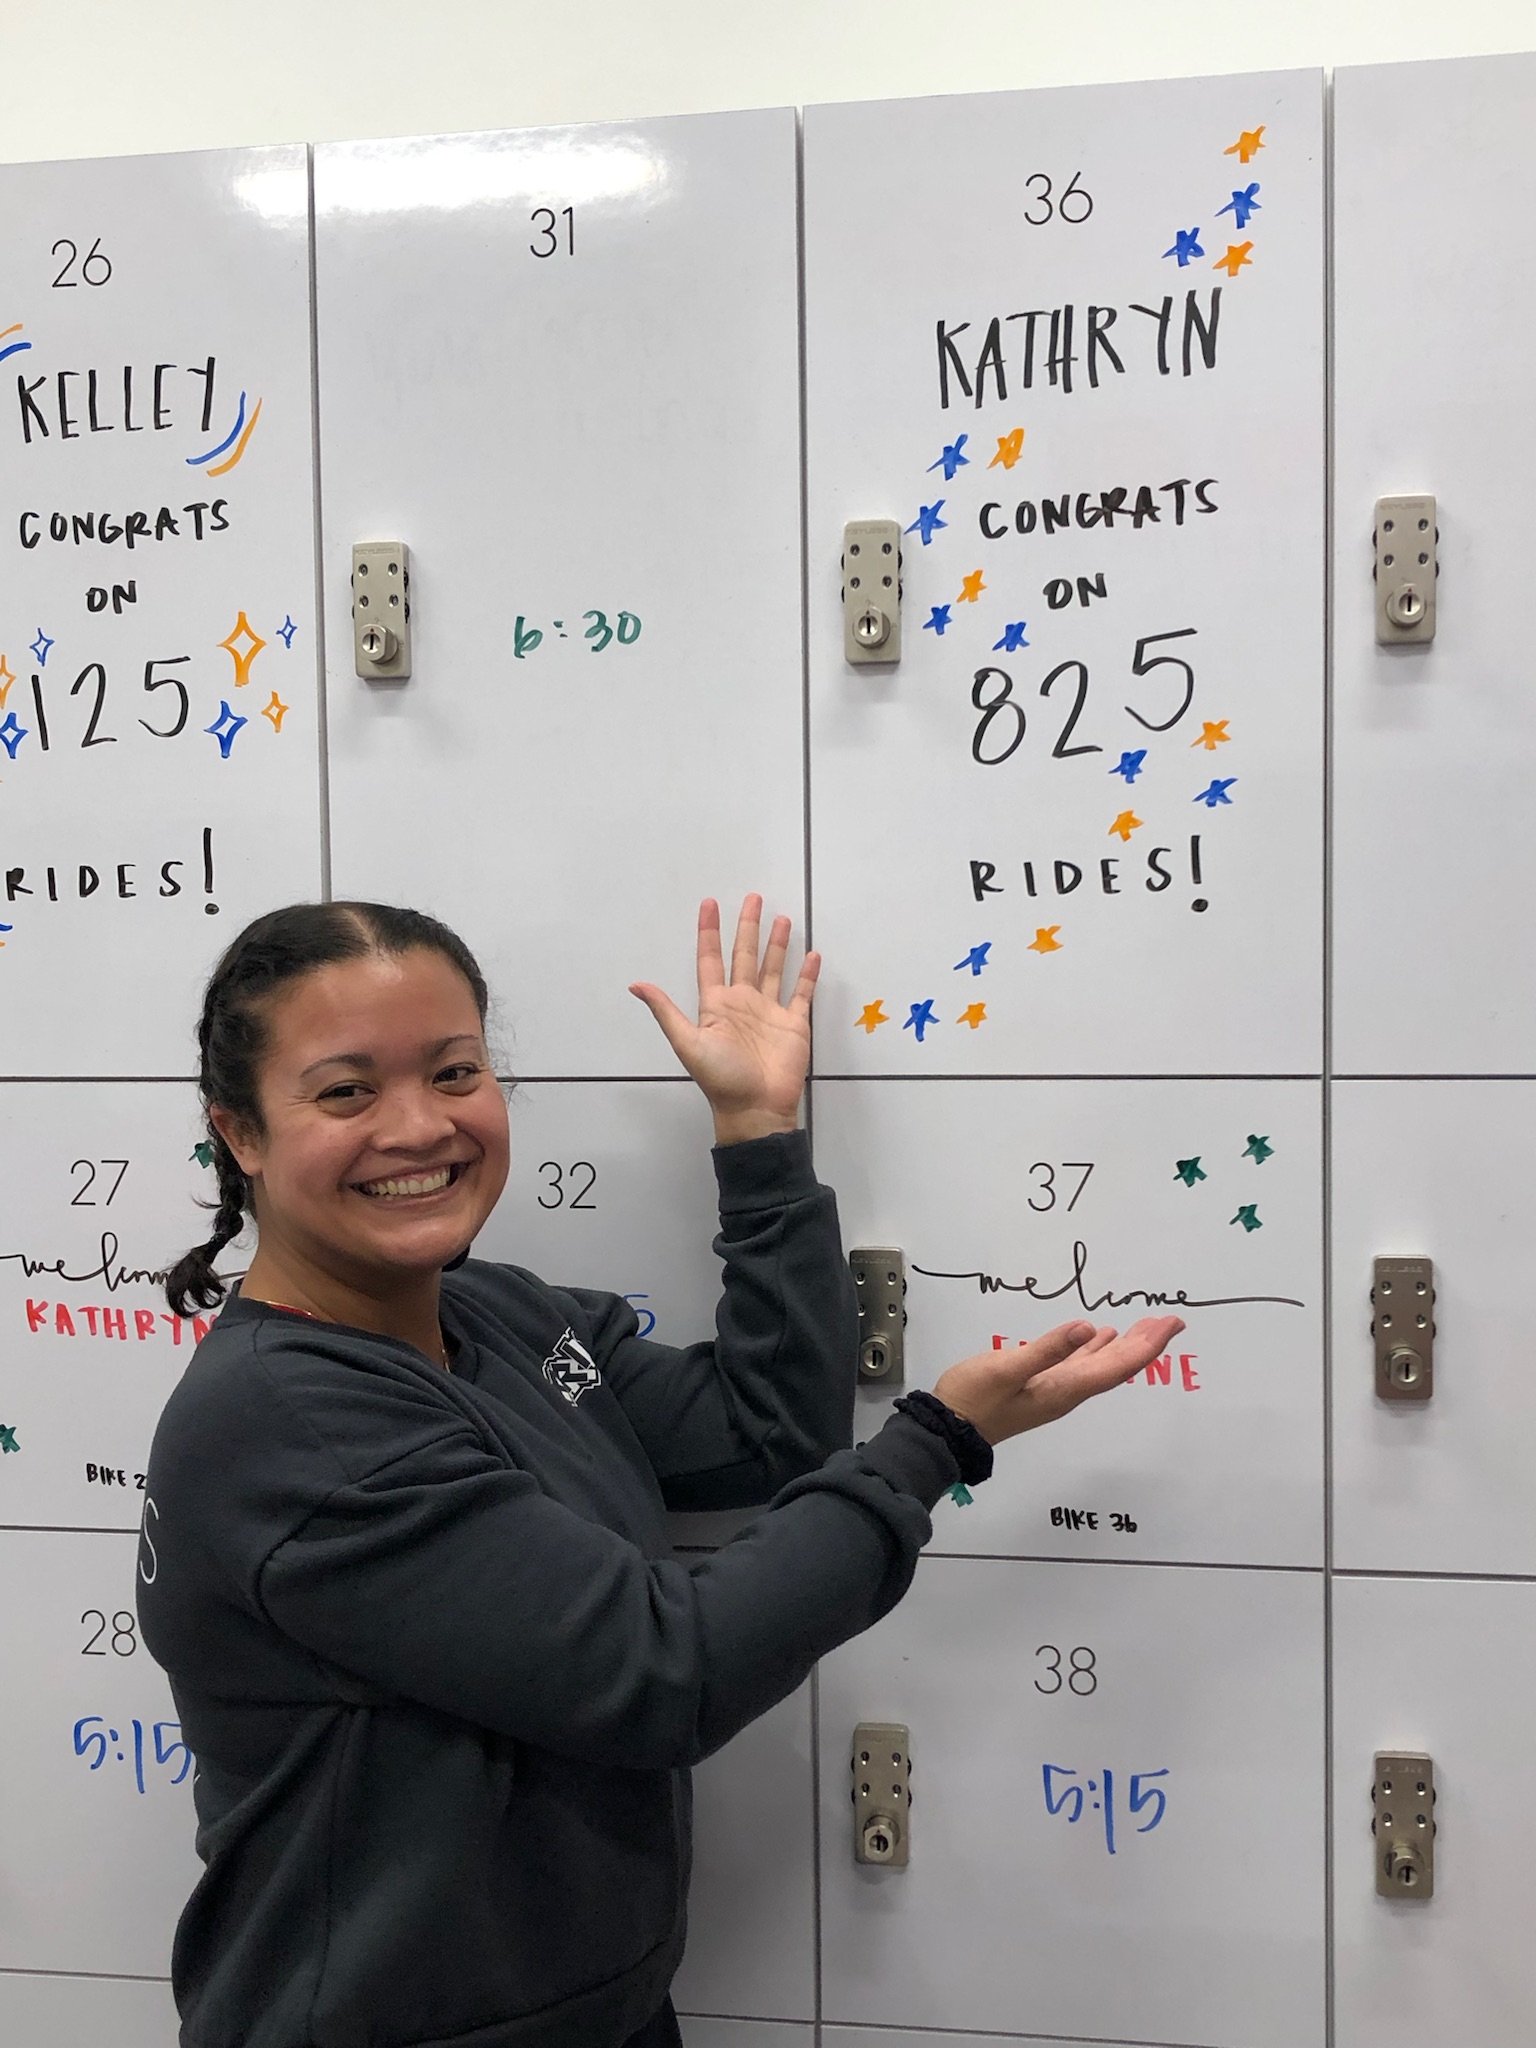 26
KELLEY
CONGRATS
ON
125
RIDES!
31
6:30
36
KATHRYN
CONGRATS
ON
825
RIDES!
27
welcome
KATHRYN
BIKE
32
37
welcome
BIKE 36
28
5:15
38
5:15